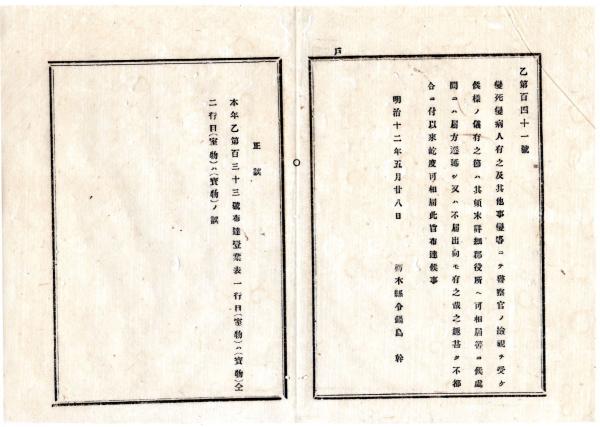 戸
乙第百四十一號
變死變病人有之及其他事變等ニテ警察官ノ撿視ヲ受ケ
候樣ノ儀有之節ハ其顚末詳細郡役所ヘ可相屆筈ニ候處
間ニハ屆方遷延シ又ハ不屆出向モ有之哉之趣甚タ不都
合ニ付以來屹度可相屆此旨布達候事
明治十二年五月廿八日
栃木縣令鍋島 幹
正誤
本年乙第百三十三號布達營業表一行目(室物)ハ(寶物)仝
二行目(室物)ハ(寶物)ノ誤